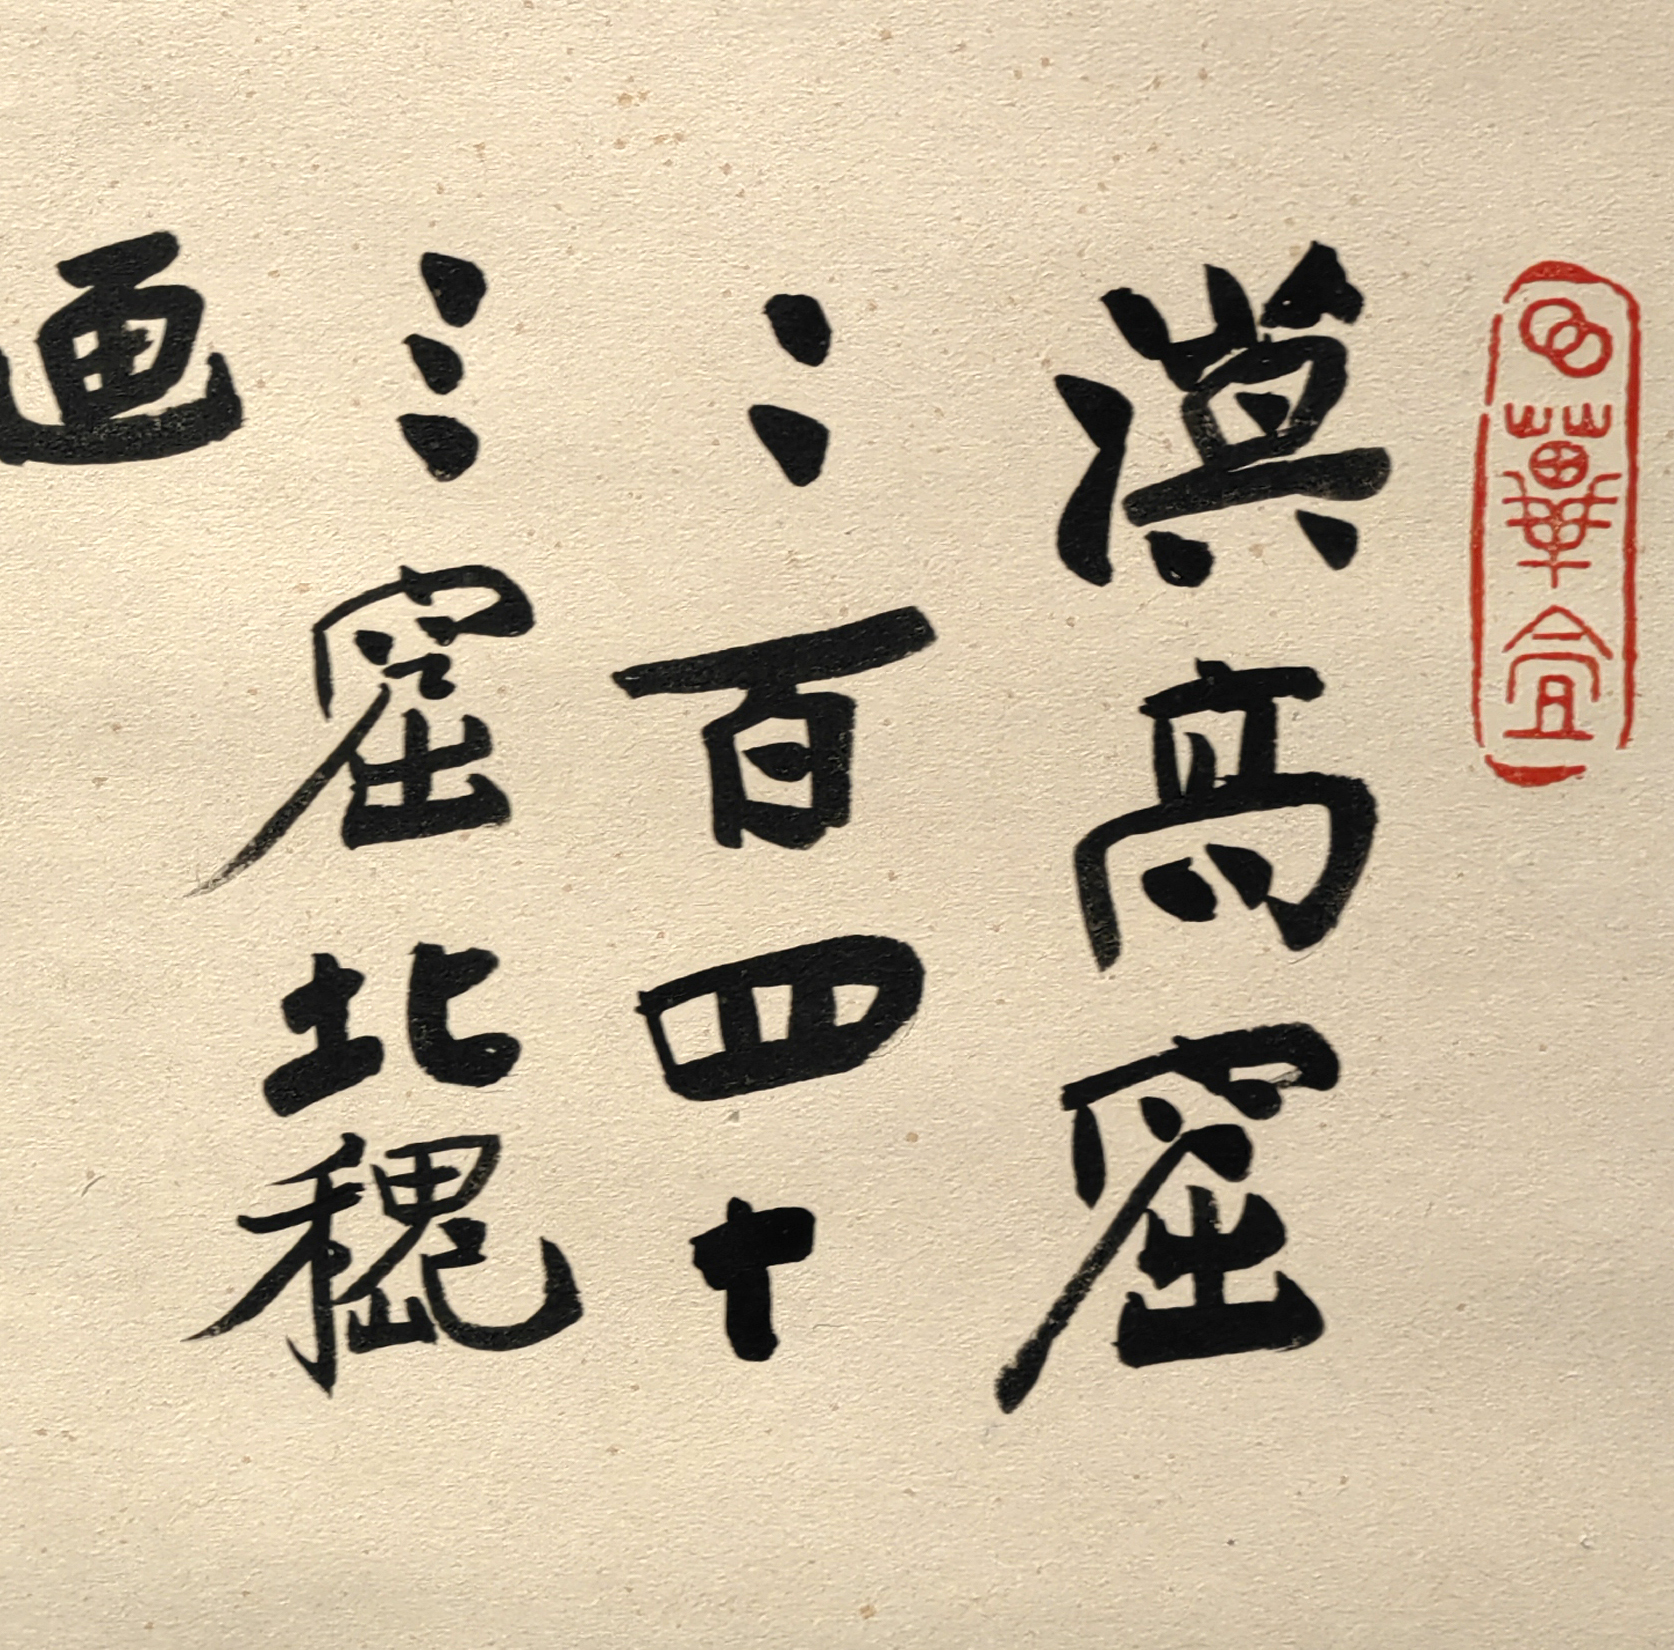 漠高窟
二百四十
三窟北魏
画